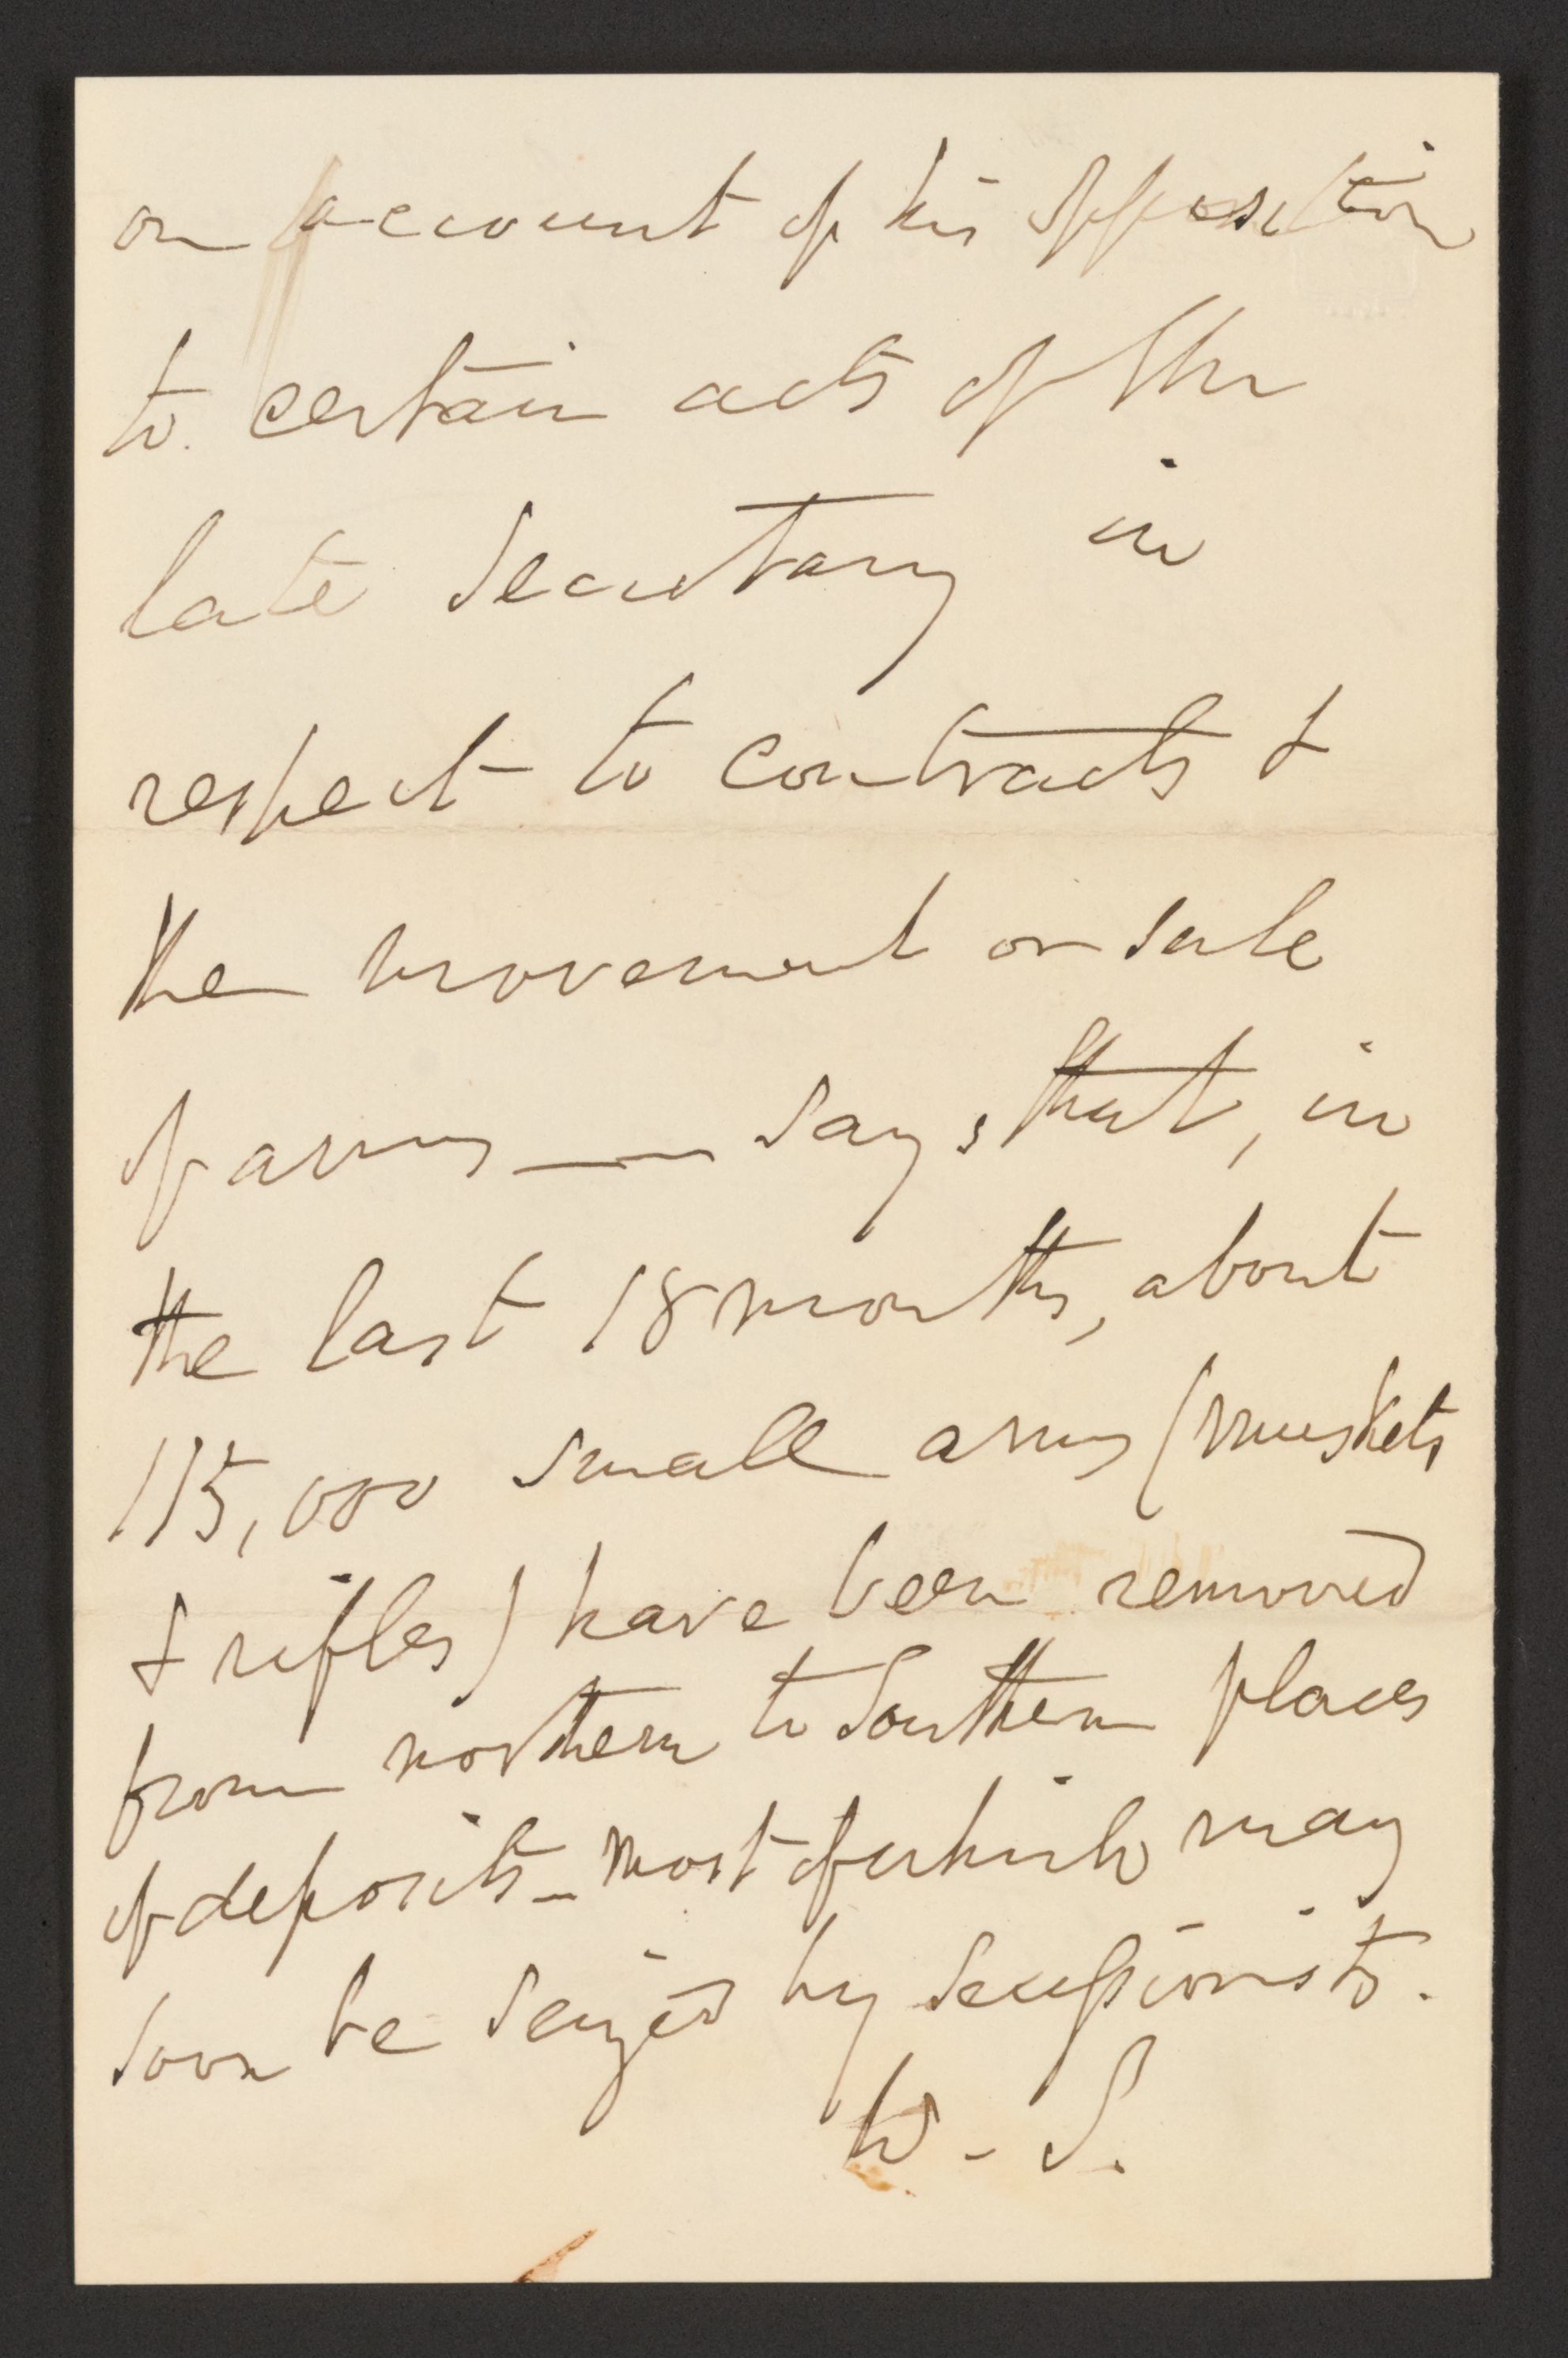 on account of his opposition
to certain acts of the
late Secretary in
respect to contracts &
the movement or sale
of arms — says that, in
the last 18 months, about
115,000 small arms (muskets
& rifles) have been removed
from northern to Southern places
of deposits — most of which may
soon be seized by Secessionists.
W. S.